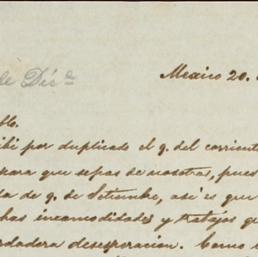 de Dic.e
Mexico 20.
blo.
ibi por duplicado el 9. del corriente
para que sepas de nosotros, pues
da de 9. de Setiembre, asi es que
chas incomodidades y trabajos q
rdadera desesperacion. Como